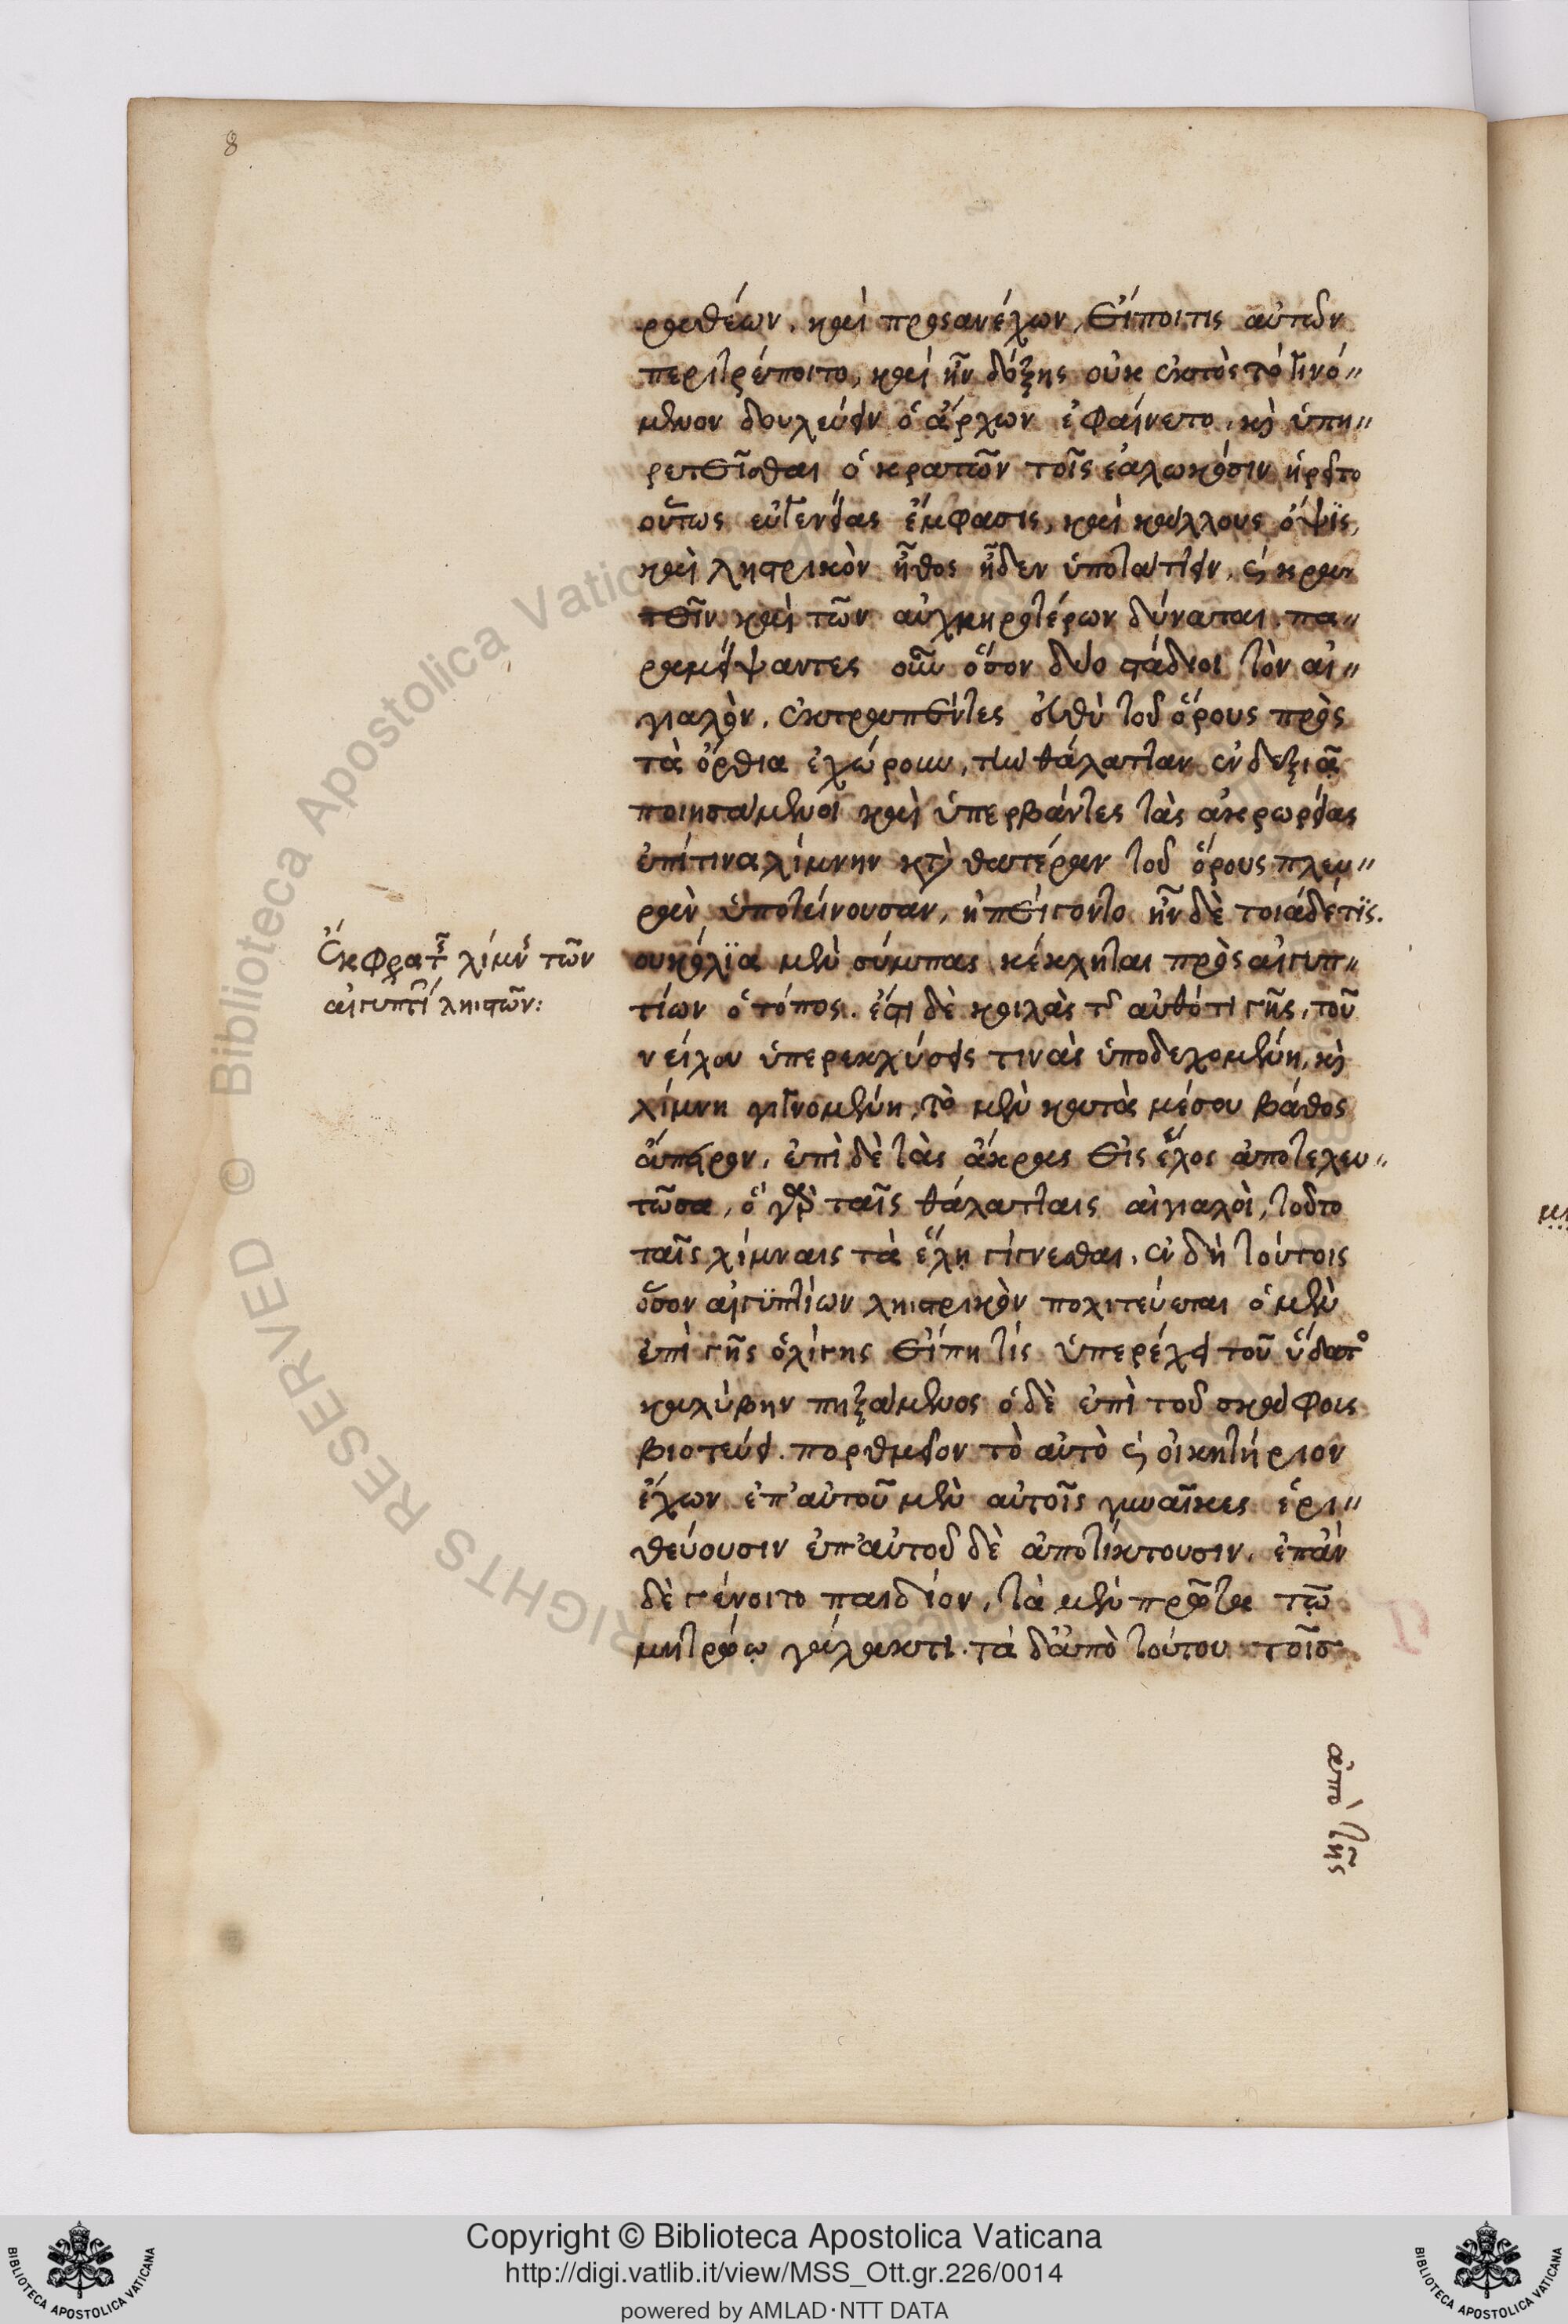 8
ραθέων, καὶ προσανέχων, εἴποι τις αὐτῶν
περιτρέποιτο, καὶ ἦν δόξης οὐκ ἐκτὸς τὸ γινό〃
μενον δουλεύειν ὁ ἄρχων ἐφαίνετο, καὶ ὑπη〃
ρετεῖσθαι ὁ κρατῶν τοῖς ἑαλωκόσιν ᾑρεῖτο
οὕτως εὐγενείας ἔμφασις, καὶ κάλλους ὄψϊς,
καὶ λῃστρικὸν ἦθος ἦδεν ὑποτάττειν, καὶ κρα
τεῖν καὶ τῶν αὐχμηροτέρων δύναται. πα〃
ραμείψαντες οὖν ὅσον δύο στάδιοι τὸν αἰ〃
γιαλὸν, ἐκτραπέντες εὐθὺ τοῦ ὄρους πρὸς
τὰ ὄρθια ἐχώρουν, τὴν θάλατταν ἐν δεξιᾷ
ποιησάμενοι καὶ ὑπερβάντες τὰς ἀκρωρείας
ἐπί τινα λίμνην κατὰ θατέραν τοῦ ὄρους πλευ〃
ρὰν ὑποτείνουσαν, ἠπείγοντο ἦν δὲ τοιάδε τϊς.
ουκόλϊα μὲν σύμπας κέκληται πρὸς αἰγυπ〃
τίων ὁ τόπος. ἔστι δὲ κοιλὰς τῆς αὐτόθι γῆς, τοῦ
νείλου ὑπερεκχύσεις τινὰς ὑποδεχομένη, καὶ
λίμνη γινομένη, τὸ μὲν κατὰ μέσου βάθος
ἄπειρον, ἐπὶ δὲ τὰς ἄκρας εἰς ἕλος ἀποτελευ〃
τῶσα, ὃ γὰρ ταῖς θάλατταις αἰγιαλοὶ, τοῦτο
ταῖς λίμναις τὰ ἕλη γίγνεσθαι. ἐν δὴ τούτοις
ὅσον αἰγϋπτίων λῃστρικὸν πολιτεύεται ὁ μὲν
ἐπὶ γῆς ὀλίγης εἴπη τίς ὑπερέχει τοῦ ὕδατος
καλύβην πηξάμενος ὁ δὲ ἐπὶ τοῦ σκάφους
βιοτεύει. πορθμεῖον τὸ αὐτὸ καὶ οἰκητήριον
ἔχων ἐπ' αὐτοῦ μὲν αὐτοῖς γυναῖκες ἐρι〃
θεύουσιν ἐπ' αὐτοῦ δὲ ἀποτίκτουσιν, ἐπὰν
δὲ γένοιτο παιδίον, τὰ μὲν πρῶτα τῷ
μητρῴῳ γάλακτι. τὰ δ' ἀπὸ τούτου τοῖσ
Ἔκφρασις λίμνης τῶν
αἰγυπτίων λῃστῶν:
ἀπὸ τῆς
Copyright © Biblioteca Apostolica Vaticana
http://digi.vatlib.it/view/MSS_Ott.gr.226/0014
powered by AMLAD·NTT DATA